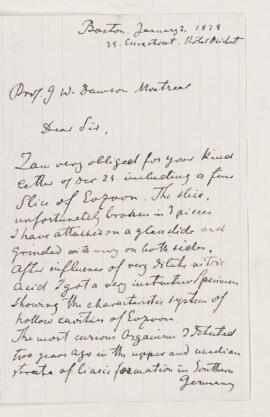 Boston. January 2. 1878
25. Essex street. Hotel
Prof. J W. Dawson Montreal
Dear Sir.
I am very obliged for your kind
letter of Dec 28 including a fine
Slice of Eozoon. The slice,
unfortunately broken in 3 pieces
I have attached on a glass slide and
grinded with emery on both sides.
After influence of very dilute nitric
Acid I got a very instructive Specimen
showing the characteristic system of
hollow cavities of Eozoon.
The most curious Organism I detected
two years ago in the upper and median
strata of liasic formation in Southern
Germany